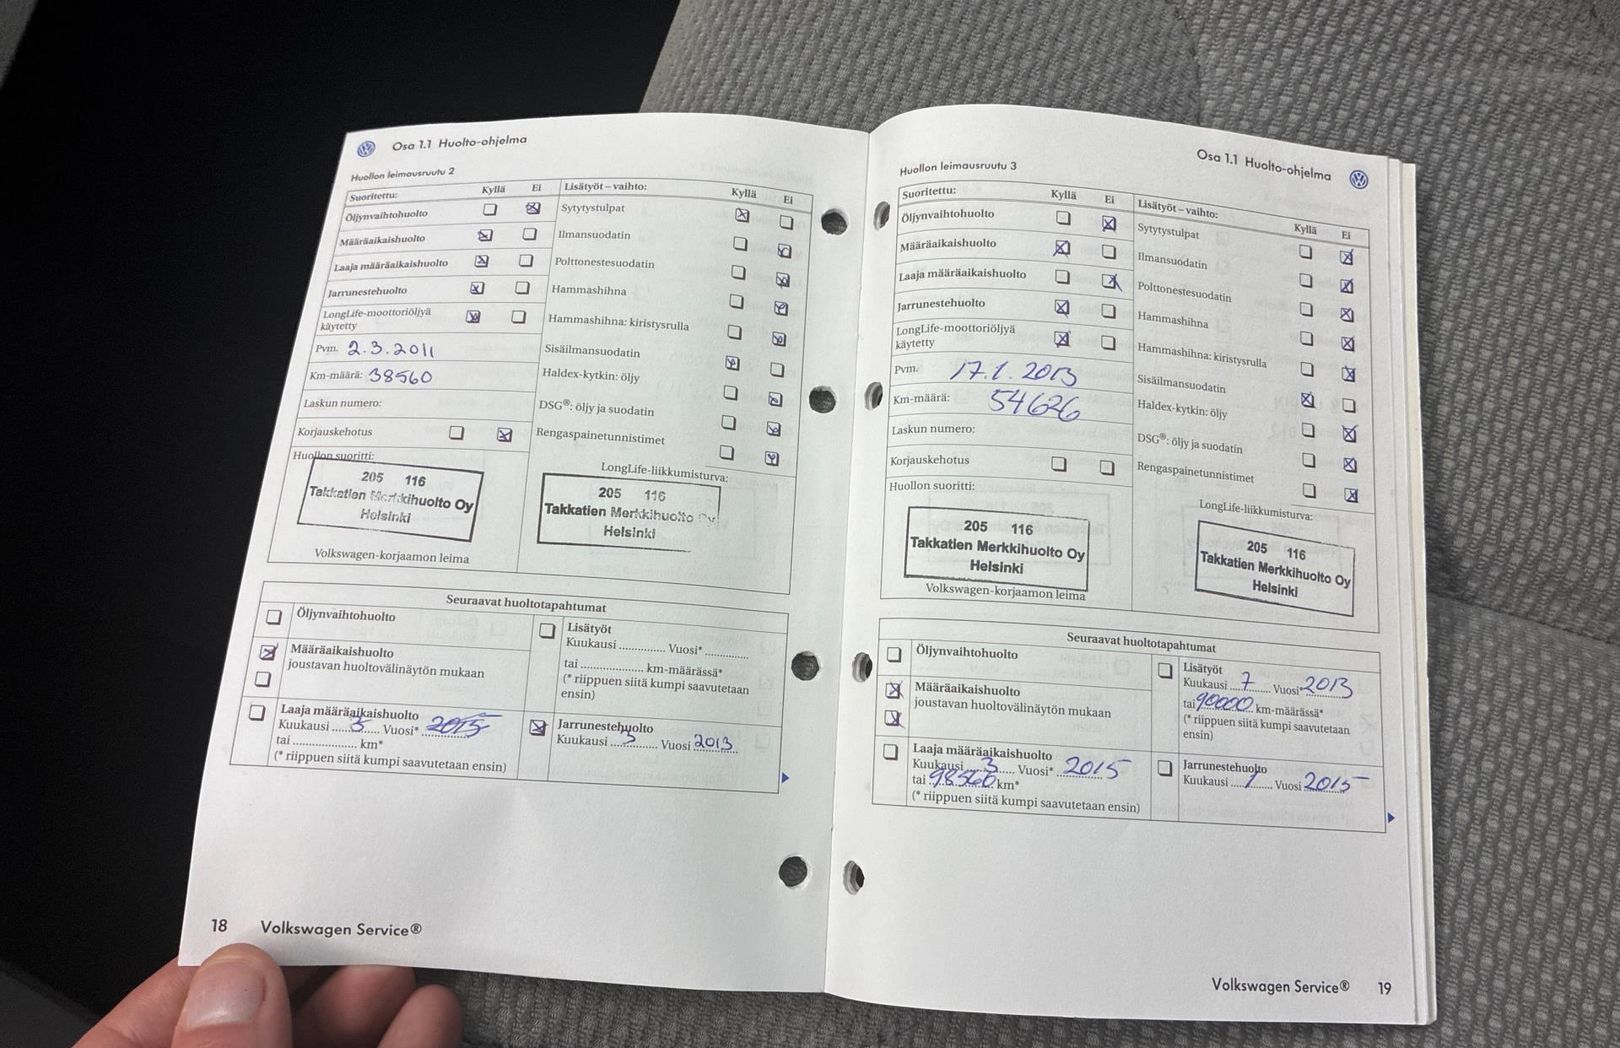 Osa 1.1 Huolto-ohjelma
Huollon leimausruutu 2
Suoritettu: Kyllä Ei
Öljynvaihtohuolto
Määräaikaishuolto
Laaja määräaikaishuolto
Jarrunestehuolto
LongLife-moottoriöljyä
käytetty
Pvm. 2.3.2011
Km-määrä: 38560
Laskun numero:
Korjauskehotus
Huollon suoritti:
205 116
Takkatien Merkkihuolto Oy
Helsinki
Volkswagen-korjaamon leima
Lisätyöt – vaihto: Kyllä Ei
Sytytystulpat
Ilmansuodatin
Polttonestesuodatin
Hammashihna
Hammashihna: kiristysrulla
Sisäilmansuodatin
Haldex-kytkin: öljy
DSG®: öljy ja suodatin
Rengaspainetunnistimet
LongLife-liikkumisturva:
205 116
Takkatien Merkkihuolto Oy
Helsinki
Seuraavat huoltotapahtumat
Öljynvaihtohuolto
Määräaikaishuolto
joustavan huoltovälinäytön mukaan
Laaja määräaikaishuolto
Kuukausi ..3.. Vuosi* 2015
tai .................. km*
(* riippuen siitä kumpi saavutetaan ensin)
Lisätyöt
Kuukausi ............. Vuosi* ............
tai .................. km-määrässä*
(* riippuen siitä kumpi saavutetaan
ensin)
Jarrunestehuolto
Kuukausi ..3.. Vuosi 2013
18 Volkswagen Service®
Osa 1.1 Huolto-ohjelma
Huollon leimausruutu 3
Suoritettu: Kyllä Ei
Öljynvaihtohuolto
Määräaikaishuolto
Laaja määräaikaishuolto
Jarrunestehuolto
LongLife-moottoriöljyä
käytetty
Pvm. 17.1.2013
Km-määrä: 54626
Laskun numero:
Korjauskehotus
Huollon suoritti:
205 116
Takkatien Merkkihuolto Oy
Helsinki
Volkswagen-korjaamon leima
Lisätyöt – vaihto: Kyllä Ei
Sytytystulpat
Ilmansuodatin
Polttonestesuodatin
Hammashihna
Hammashihna: kiristysrulla
Sisäilmansuodatin
Haldex-kytkin: öljy
DSG®: öljy ja suodatin
Rengaspainetunnistimet
LongLife-liikkumisturva:
205 116
Takkatien Merkkihuolto Oy
Helsinki
Seuraavat huoltotapahtumat
Öljynvaihtohuolto
Määräaikaishuolto
joustavan huoltovälinäytön mukaan
Laaja määräaikaishuolto
Kuukausi ..3.. Vuosi* 2015
tai 98560 km*
(* riippuen siitä kumpi saavutetaan ensin)
Lisätyöt
Kuukausi ..7.. Vuosi* 2013
tai 90000 km-määrässä*
(* riippuen siitä kumpi saavutetaan
ensin)
Jarrunestehuolto
Kuukausi ..1.. Vuosi 2015
Volkswagen Service® 19